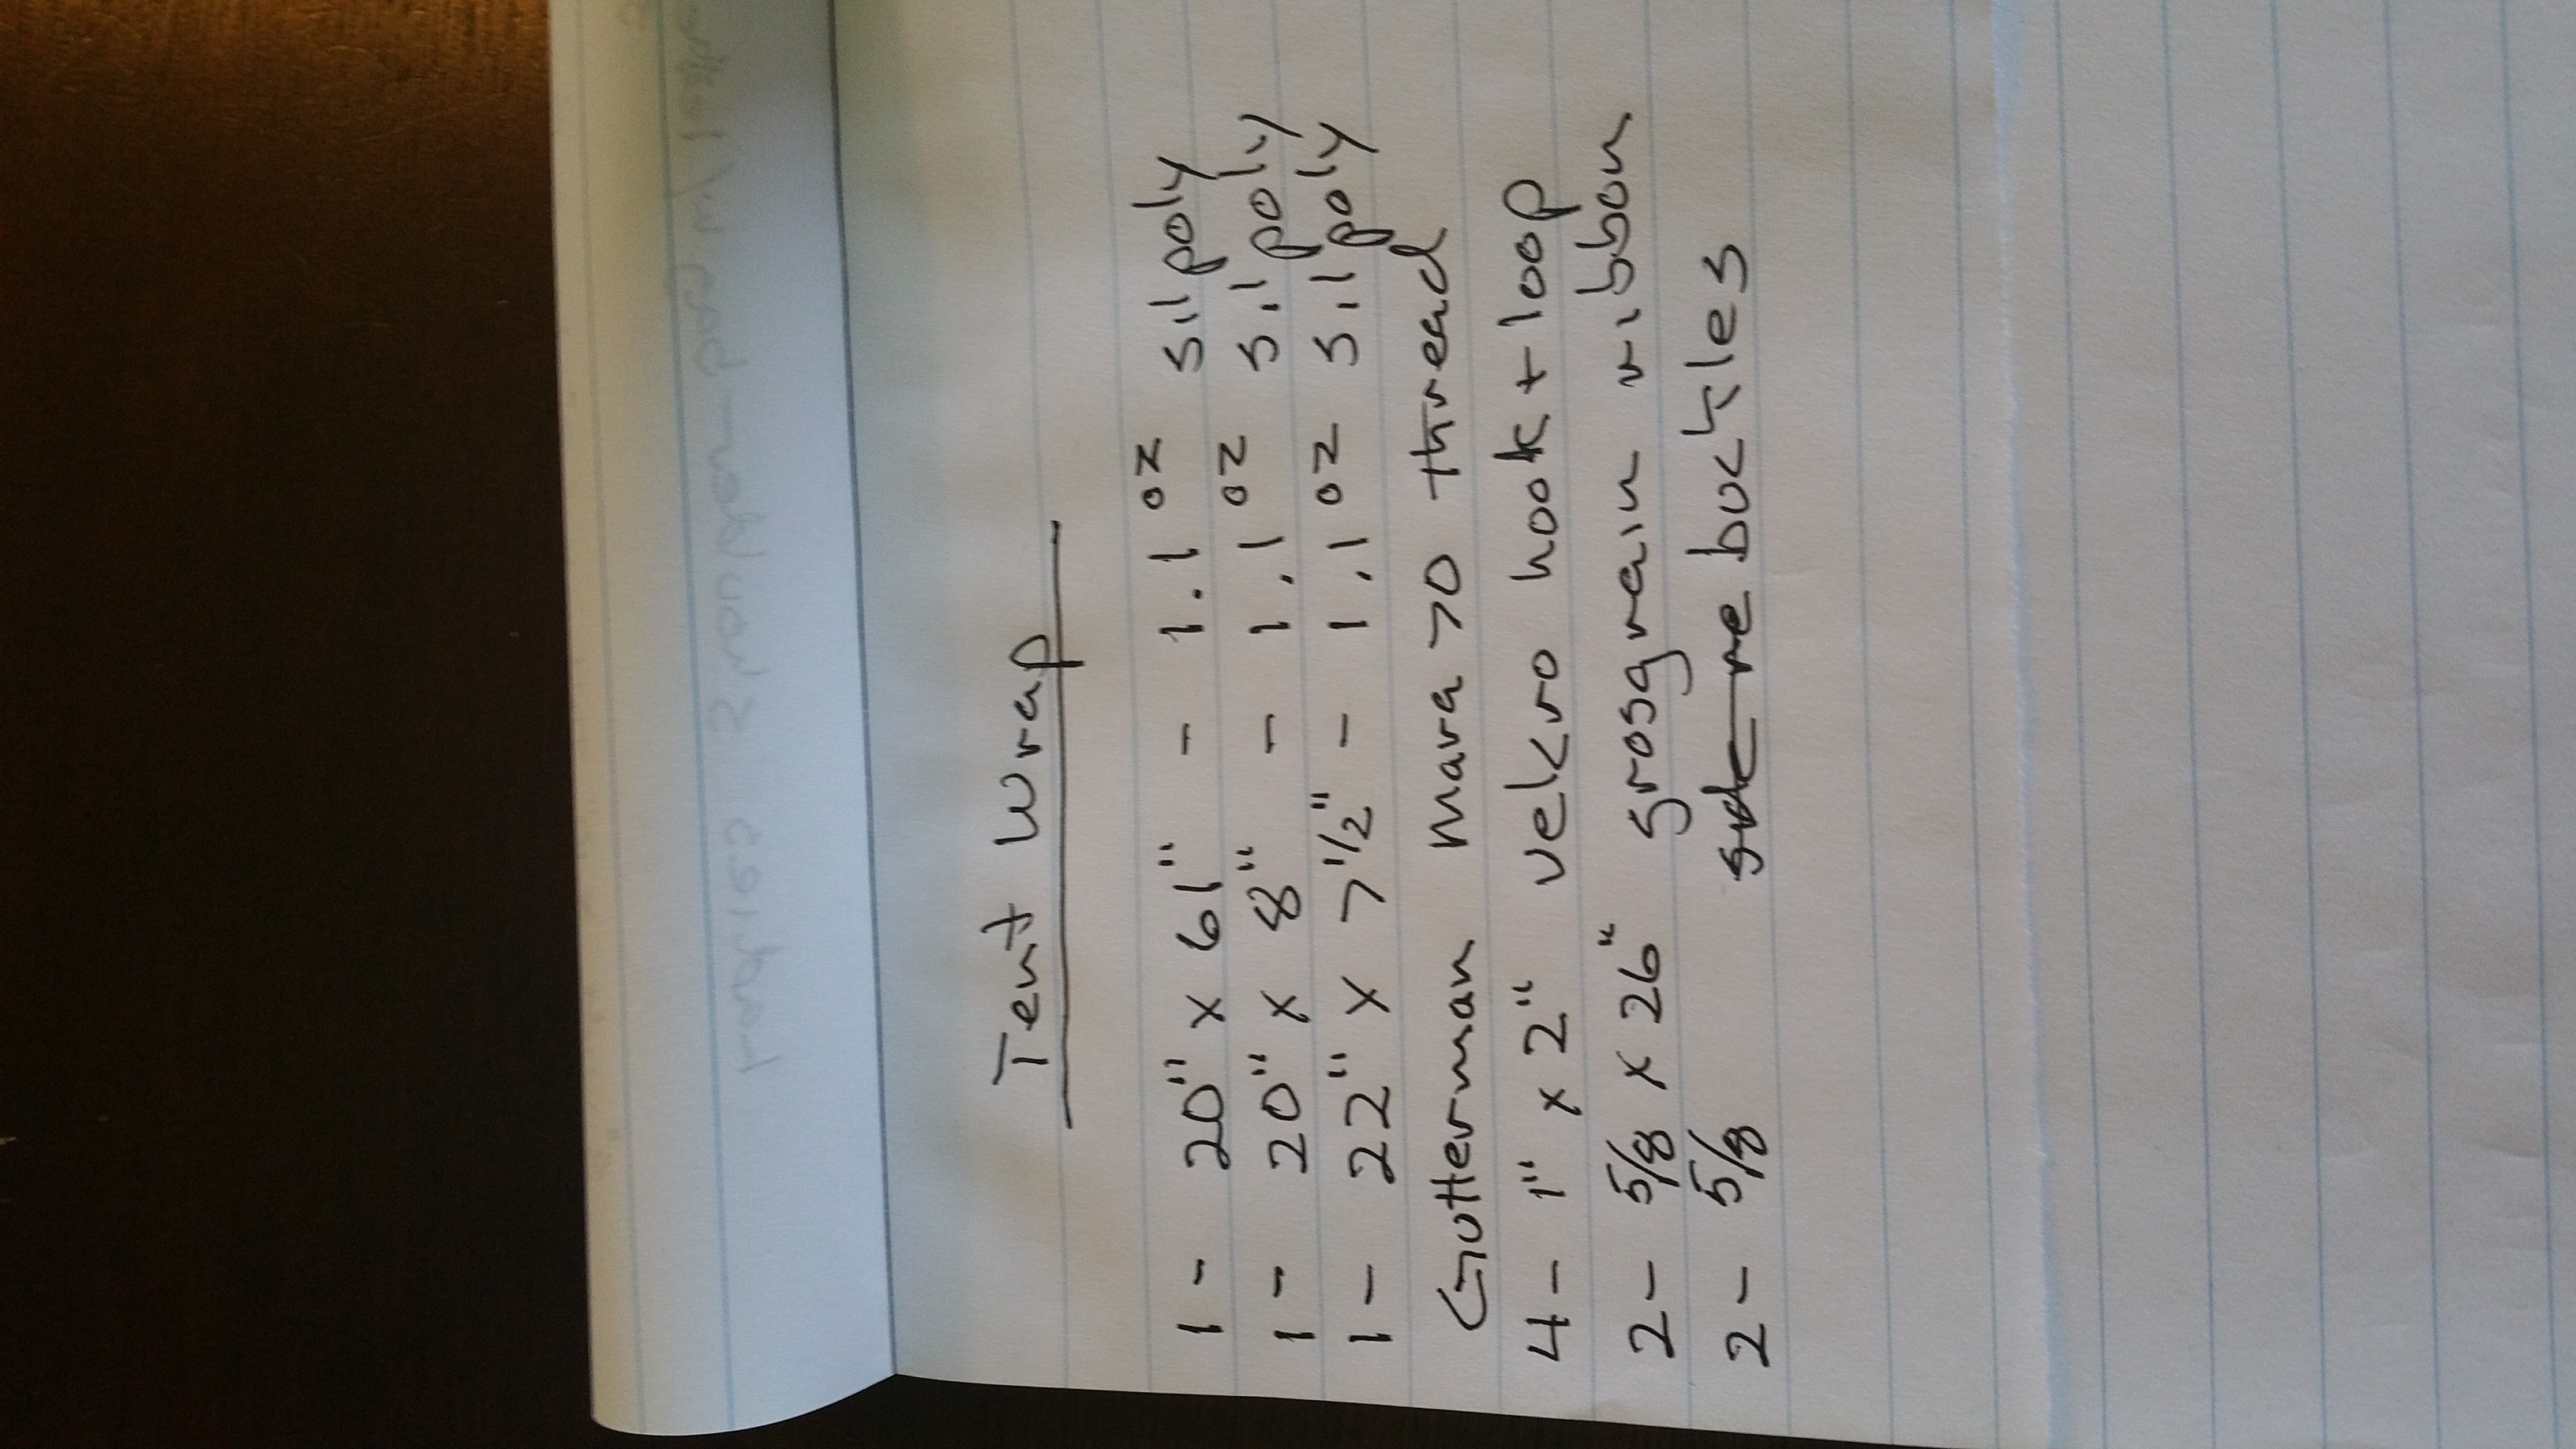 Tent Wrap
1 - 20" x 61" - 1.1 oz silpoly
1 - 20" x 8" - 1.1 oz silpoly
1 - 22" x 7 1/2" - 1.1 oz silpoly
Gutterman mara 70 thread
4 - 1" x 2" velcro hook + loop
2 - 5/8 x 26" grosgrain ribbon
2 - 5/8 buckles